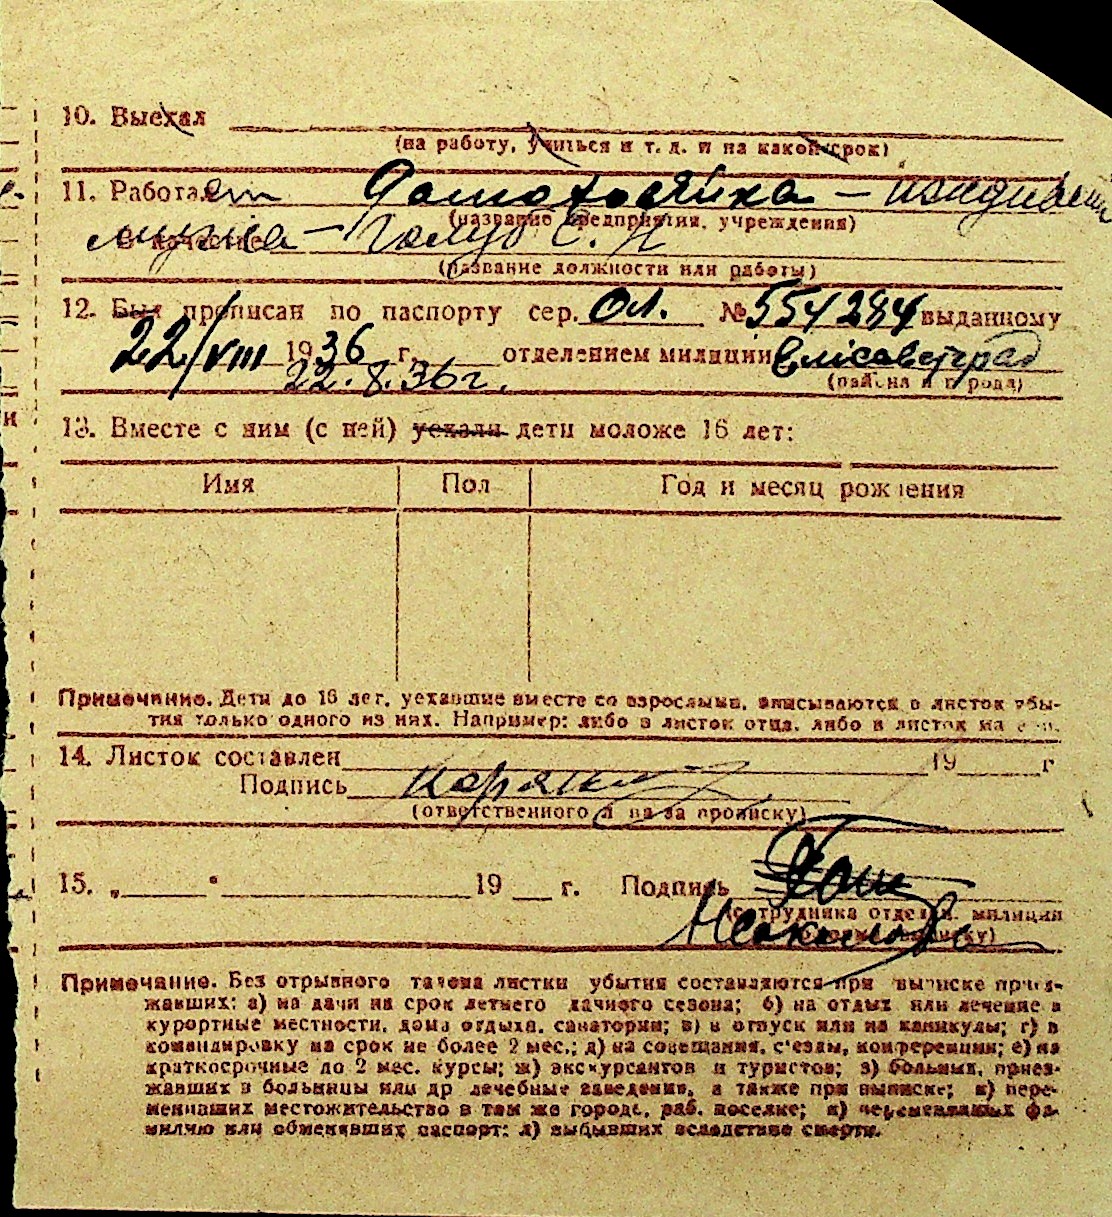 10. Выехал
(на работу, учиться и т. д. и на какой срок)
11. Работает Домохозяйка — иждивен
(название предприятия, учреждения)
мужа — Голуб С. И
в качестве
(название должности или работы)
12. Был прописан по паспорту сер. ОЛ. № 554284 выданному
22/VIII 1936 г. отделением милиции Елисаветград
22.8.36г. (района и города)
13. Вместе с ним (с ней) уехали дети моложе 16 лет:
Имя Пол Год и месяц рождения
Примечание. Дети до 16 лет, уехавшие вместе со взрослыми, вписываются в листок убы-
тия только одного из них. Например: либо в листок отца, либо в листок
14. Листок составлен 19 г
Подпись
(ответственного л на за прописку)
15. „ “ 19 г. Подпись
(сотрудника отдел. милиции
Примечание. Без отрывного талона листки убытия составляются при выписке приез-
жавших: а) на дачи на срок летнего дачного сезона; б) на отдых или лечение в
курортные местности, дома отдыха, санатории; в) в отпуск или на каникулы; г) в
командировку на срок не более 2 мес.; д) на совещания, съезды, конференции; е) на
краткосрочные до 2 мес. курсы; ж) экскурсантов и туристов; з) больных, приез-
жавших в больницы или др лечебные заведения, а также при выписке; и) пере-
менивших местожительство в том же городе, раб. поселке; к) переменивших фа-
милию или обменявших паспорт; л) выбывших вследствие смерти.